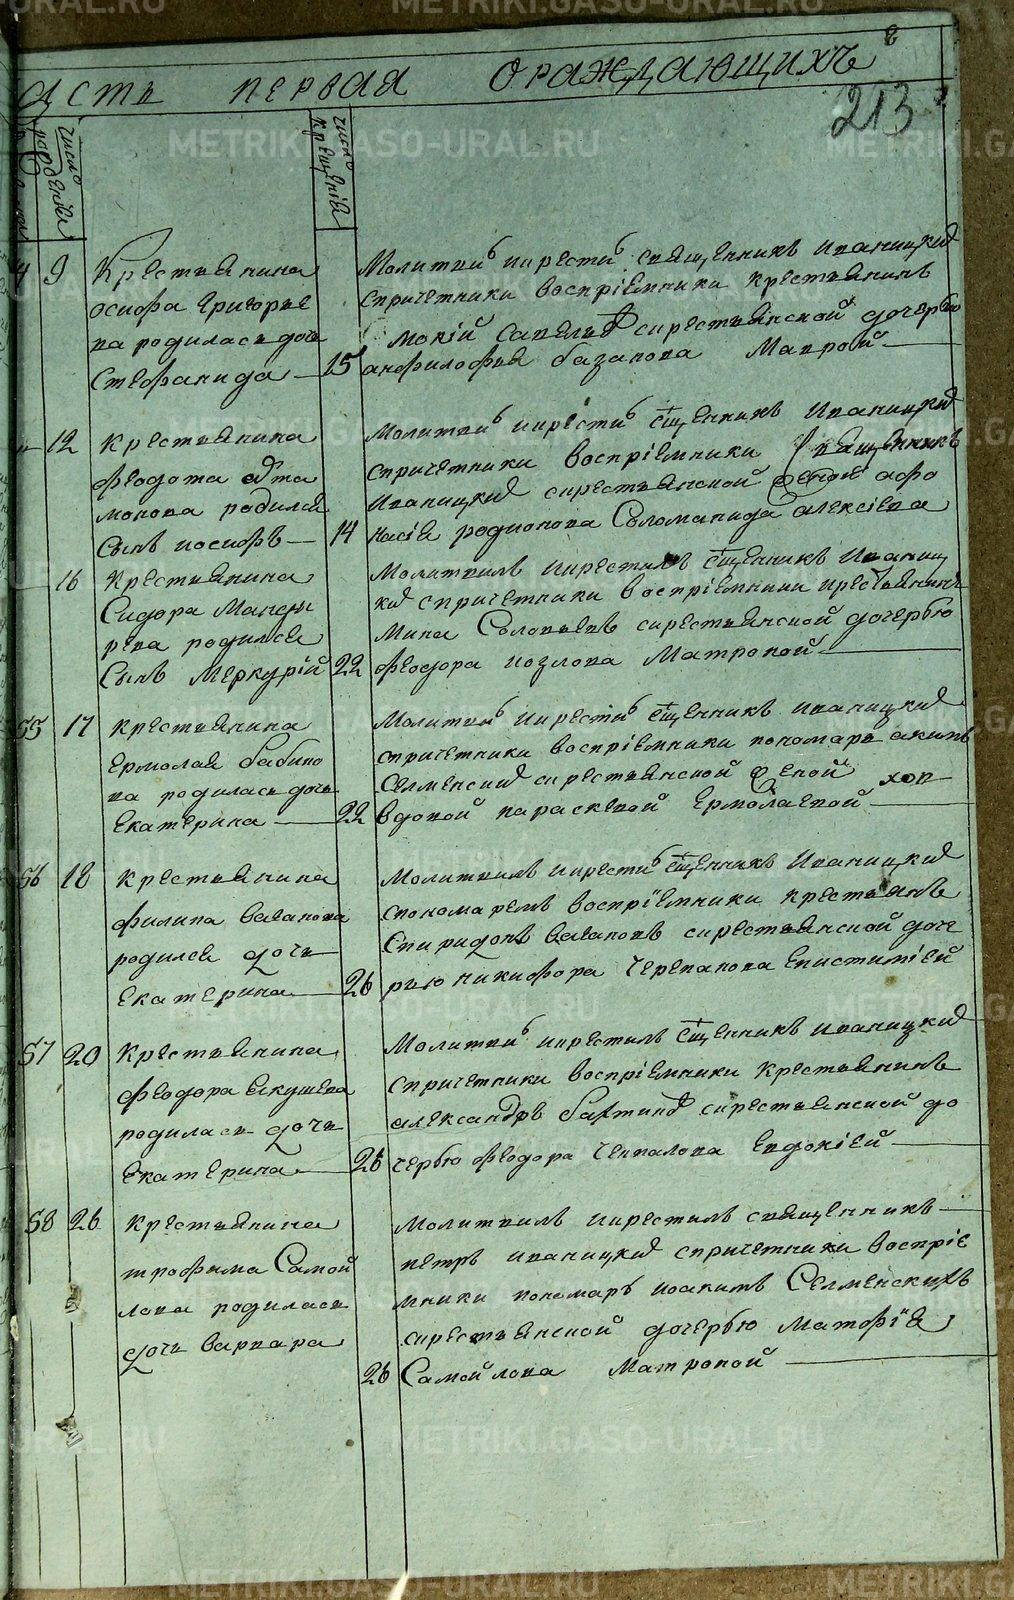 METRIKI.GASO-URAL.RU
часть первая ораждающихъ
213
число рожденія
число крещенія
9 Крестьянина
осифа Григорье
ва родилась дочь
Стефанида 15
Молитвиᲆ икрестиᲆ священникъ Иваницкий
спричетники воспріемники крестьянинъ
Мокій Савельев скрестьянской дочерью
анфилофья базанова Маврой
12 Крестьянина
феодота
монова родился
Сынъ иосифъ 14
молитвиᲆ икрестиᲆ сщенникъ Иваницкий
спричетники воспріемники священникъ
Иваницкий скрестьянской женой афо
насія родионова Соломанида алексіева
16 Крестьянина
Сидора Мансы
рева родился
Сынъ Меркурій 22
Молитвилъ икрестилъ сщенникъ Иваниц
кий спричетники воспріемники крестьянинъ
Мина Соловьевъ скрестьянской дочерью
феодора козлова Матроной
55 17 Крестьянина
Ермолая бабино
ва родилась дочь
Екатерина 22
Молитвиᲆ икрестиᲆ сщенникъ иваницкий
спричетники воспріемники пономарь акимъ
Селменский скрестьянской женой
вдовой параскевой Ермолаевой
56 18 Крестьянина
филипа ваганова
родился дочь
Екатерина 26
Молитвилъ икрестиᲆ сщенникъ Иваницкий
спономаремъ воспріемники крестьянинъ
Спиридонъ вагановъ скрестьянской доче
рью никифора Черепанова Епистиміей
57 20 Крестьянина
феодора Екушева
родилась дочь
Екатерина 26
Молитвиᲆ икрестилъ сщенникъ иваницкий
спричетники воспріемники Крестьянинъ
александръ бахтинъ скрестьянской до
черью феодора Чекпалова Евдокіей
58 26 Крестьянина
трофима Самой
лова родилась
дочь варвара 26
Молитвилъ икрестилъ священникъ
петръ иваницкий спричетники воспріе
мники пономарь иоакимъ Селменскихъ
скрестьянской дочерью матофія
Самойлова Матроной